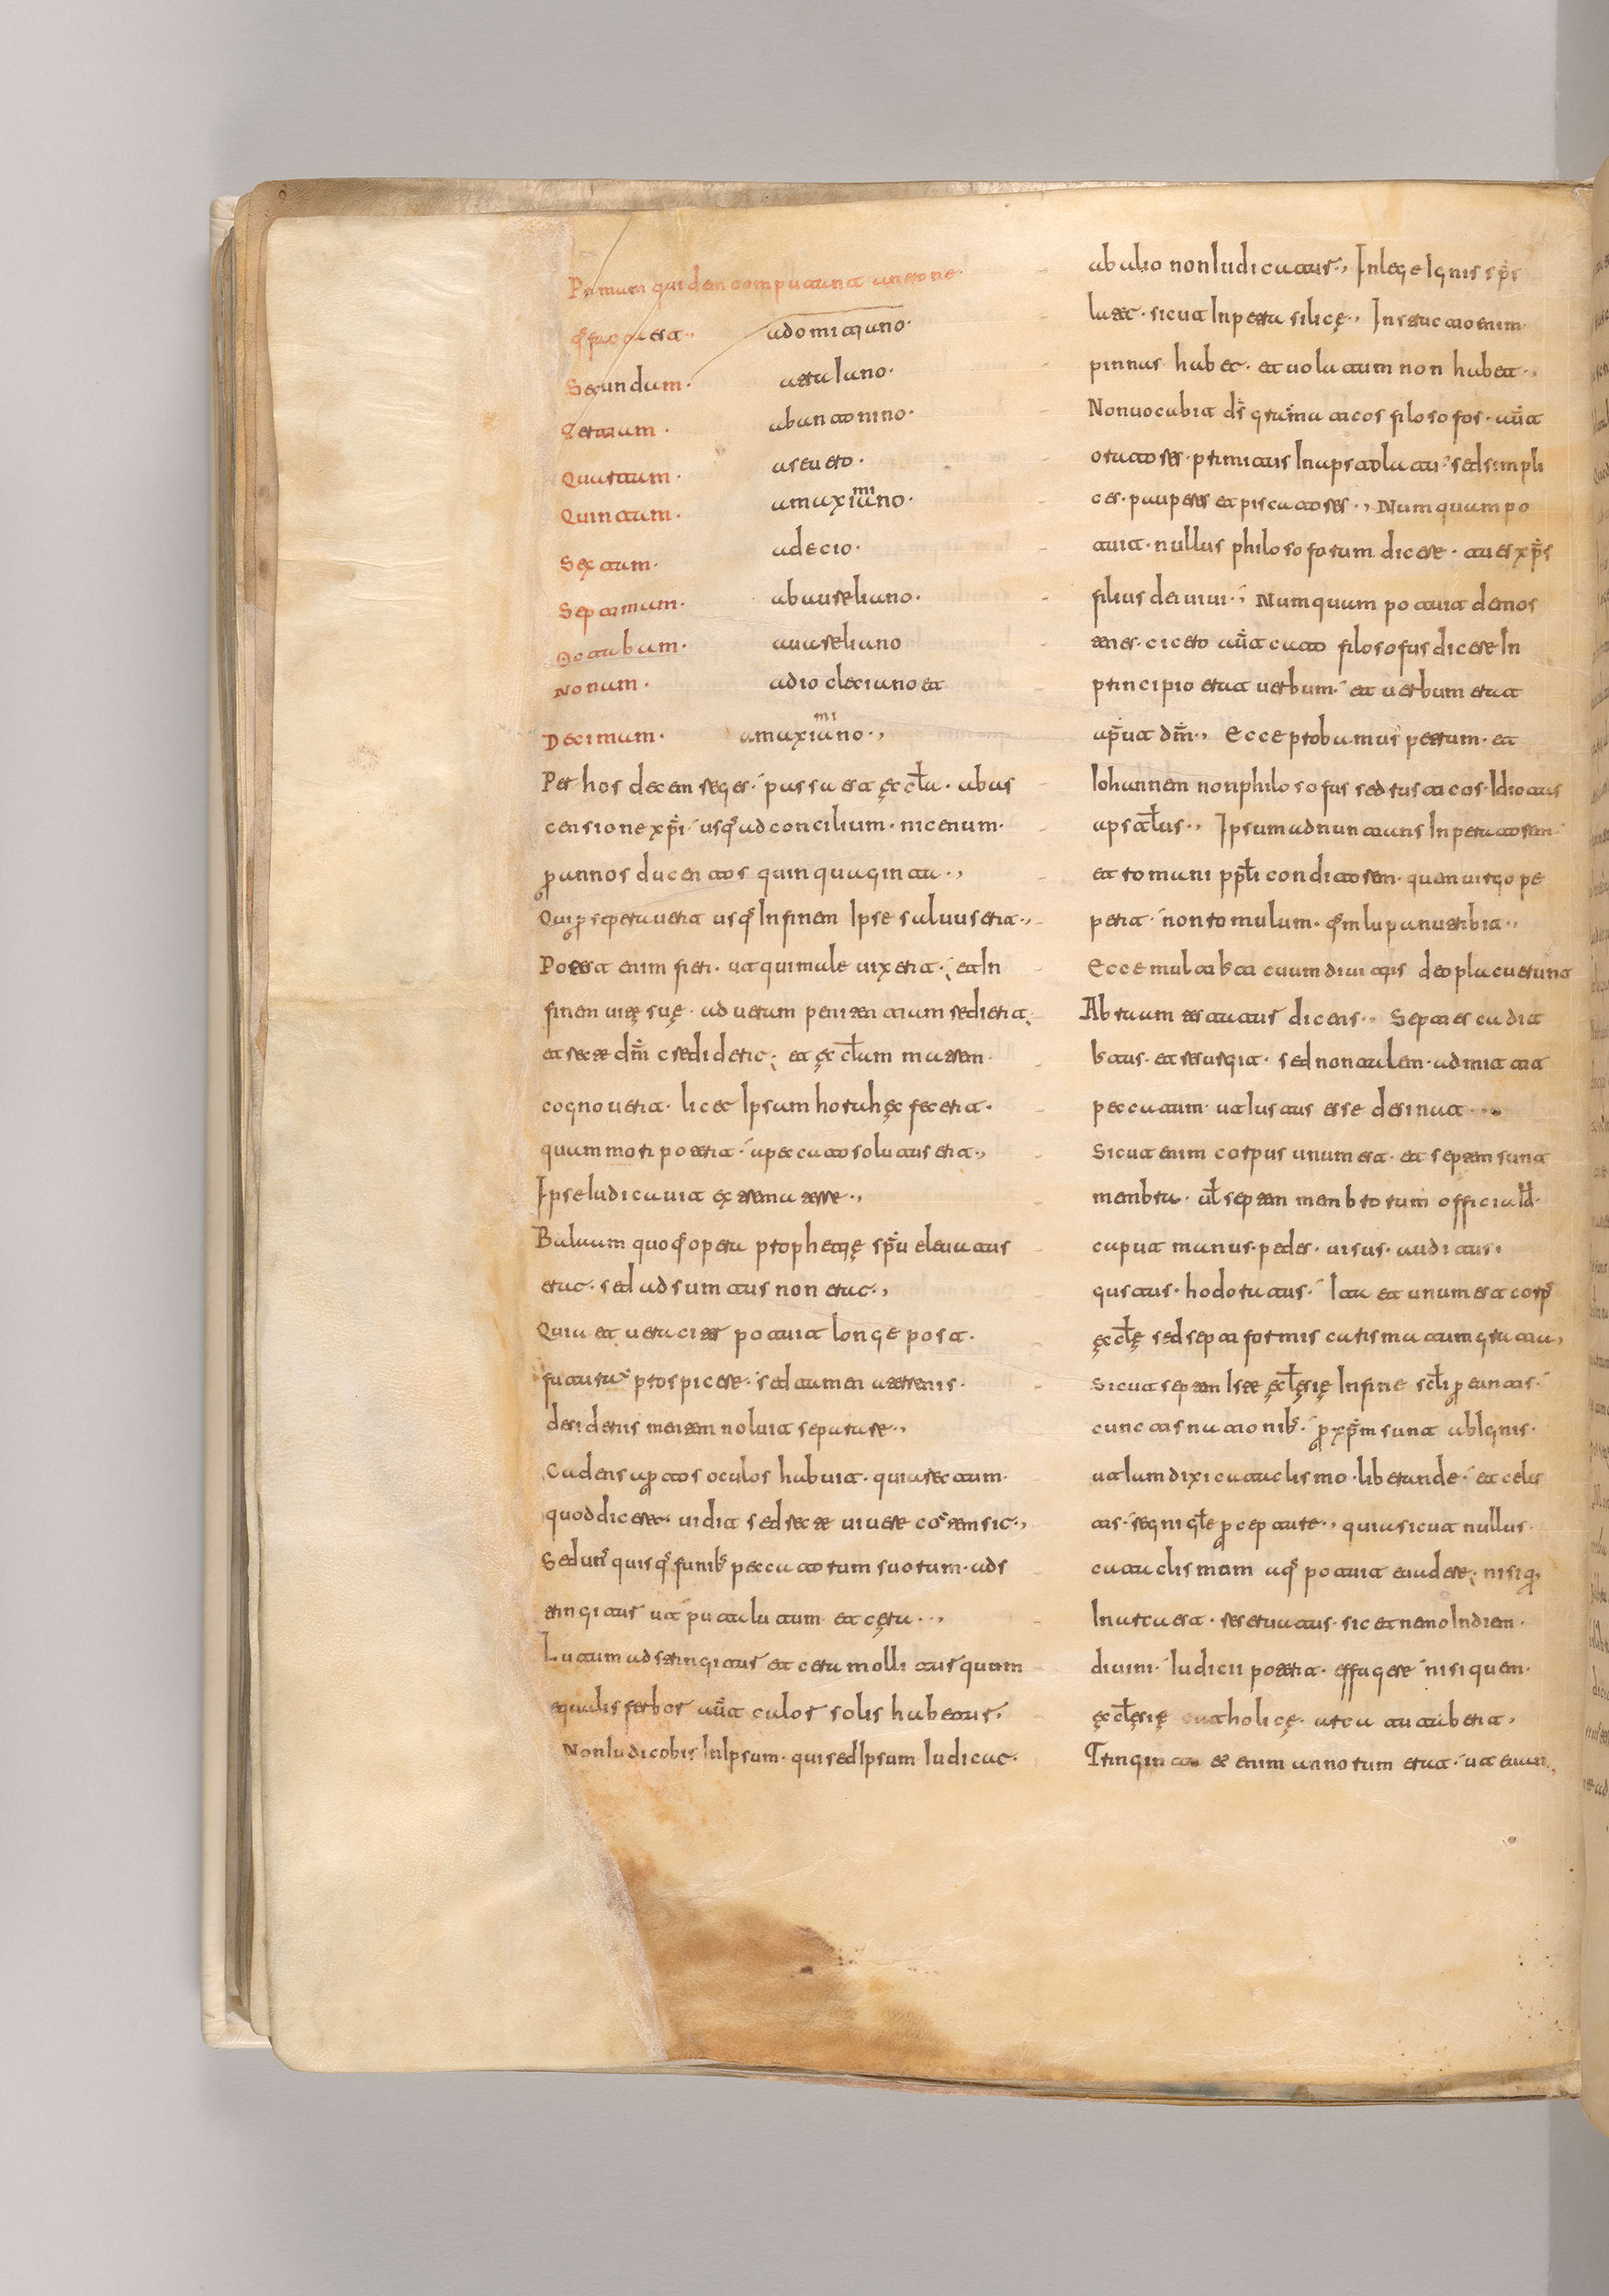 Primum quidem computatur a nerone
qđ facta est · a domitiano ·
Secundum · a traiano ·
Tertium · ab antonino ·
Quartum · a seuero ·
Quintum · a maximiano ·
Sextum · a decio ·
Septimum · ab aureliano ·
Octabum · a aureliano
Nonum · a diocletiano et
Decimum · a maximiano ·,
Per hos decem reges · passa est ęccła · ab as
censione xp̄i · usq; ad concilium · nicenum ·
ꝑ annos ducentos quinquaginta ·,
Qui ꝑseperauerit usq; In finem Ipse saluus erit ·,
Potest enim fieri · ut qui male uixerit · et In
finem uitę suę · ad ueram penitentiam redierit ·
et recte dm̄ crediderit · et ęcc̄łam matrem ·
cognouerit · licet Ipsum hora hęc fecerit ·
quam mori poterit · a peccato solutus erit ·,
Ipse Iudicauit extrema terre ·,
Balaam quoq; opera prophetię sp̄u eleuatus
erat · sed ad summatus non erat ·,
Quia et ueraciter potuit longe post ·
futura prospicere · sed tamen a terrenis ·
desideriis mentem noluit separare ·,
Cadens aꝑtos oculos habuit · quia rectum ·
quod diceret · uidit sed recte uiuere contemsit ·,
Sed unusquisq; funib; peccatorum suorum · ads
tringitur ut pu ta lutum et cera ·,
Lutum adstringitur et cera mollitur quam
equalis ferbor aūt calor solis habetur ·
Non Iudicabis In Ipsum · qui sed Ipsum Iudicat ·
ab alio non Iudicatur ·, In lege Ignis sp̄s
latet · sicut In petra silicę ·, In structio enim ·
pinnas habet · et uolatum non habet ·,
Non uocabit ds̄ gramaticos filosofos · aūt
oratores · primitus In apostolatu · sed simpli
ces · pauperes et piscatores ·, Numquam po
tuit · nullus philosoforum dicere · tu es xp̄s
filius dei uiui · Numquam potuit demos
tenes · cicero aūt cato filosofus dicere In
principio erat uerbum · et uerbum erat
aput dm̄ ·, Ecce probamus petrum · et
Iohannem non philosofus sed rusticos · Idiotus
apostołus ·, Ipsum adnuntians Inperatorem ·
et romani pp̄łi conditorem · quem uirgo pe
perit · non romulum · qm̄ lupa nutribit ·,
Ecce mul tib; ti tuum diuitiis deo placuerunt
Abraum testatus dicens ·, Septies cadit
Iustus · et resurgit · sed non autem · admittit
peccatum · ut Iustus esse desinat ·
Sicut enim corpus unum est · et septem sunt
menbra · uł septem menbrorum officia Id ·
caput manus · pedes · uisus · auditus ·
gustus · hodoratus · Ita et unum est corp̄
ęcc̄łę sed septiformis carismatum gratia ·,
Sicut septem Iste ęcc̄łęsię In fine sc̄łi ꝑeuntis ·
cunctis nationib; · ꝑ xp̄m sunt ab Ignis ·
ut Iam dixi cataclismo · liberande · et celes
tis · regni głę ꝑcepture ·, quia sicut nullus ·
cataclismum aq; potuit euadere · nisi qui
In arca est · reseruatus · sic et nemo In diem ·
diuini · Iudicii poterit · effugere nisi quem ·
ęccłęsię catholicę · arca tutabit ·
Triginta et enim annorum erat · ut